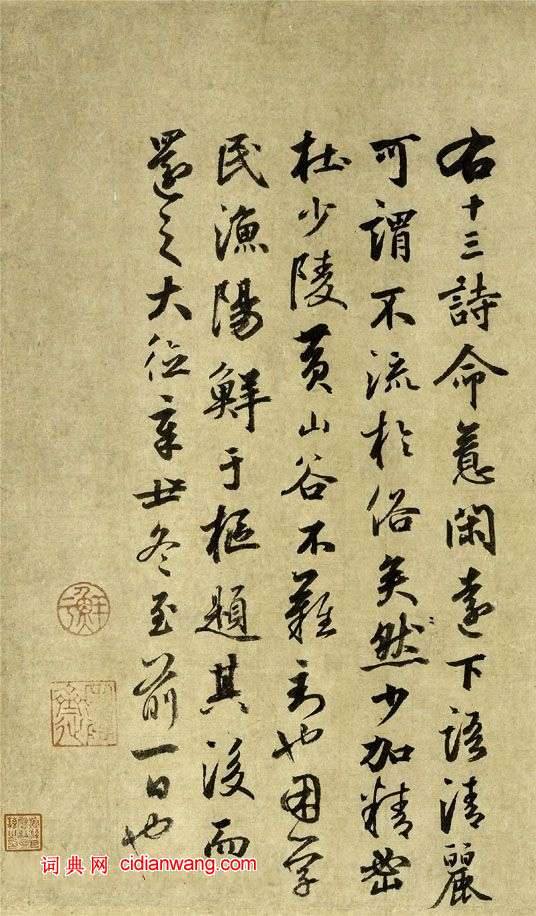 右十三詩命意閑遠下語清麗
可謂不流於俗矣然少加精密
杜少陵黃山谷不難到也困學
民漁陽鮮于樞題其後而
還之大德辛丑冬至前一日也
词典网 cidianwang.com